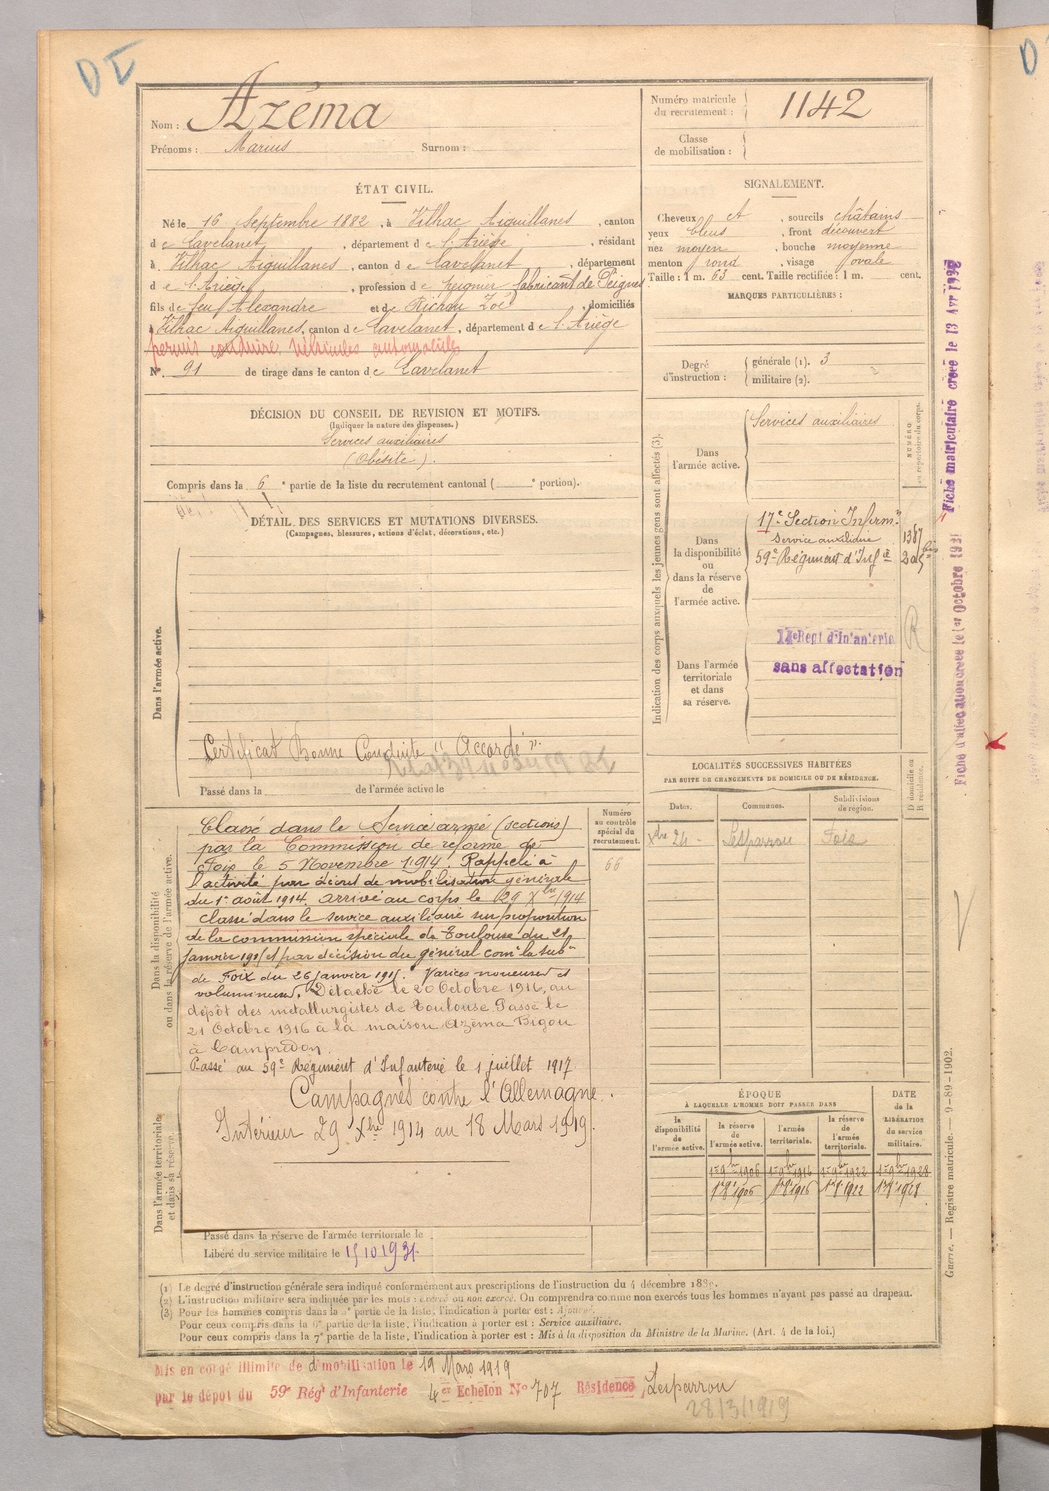 DI
Nom : Azéma
Prénoms : Marius Surnom :
Numéro matricule du recrutement : 1142
Classe de mobilisation :
ÉTAT CIVIL.
Né le 16 Septembre 1882, à Vilhac Aiguillanes, canton
de Lavelanet, département de l'Ariège, résidant
à Vilhac Aiguillanes, canton de Lavelanet, département
de l'Ariège, profession de peignier fabricant de Peignes
fils de feu Alexandre et de Richou Zoé, domiciliés
à Vilhac Aiguillanes, canton de Lavelanet, département de l'Ariège
permis conduire véhicules automobiles
N° 91 de tirage dans le canton de Lavelanet
SIGNALEMENT.
Cheveux et, sourcils châtains
yeux bleus, front découvert
nez moyen, bouche moyenne
menton rond, visage ovale
Taille : 1 m. 63 cent. Taille rectifiée : 1 m. cent.
MARQUES PARTICULIÈRES :
Degré d'instruction : générale (1). 3
militaire (2).
DÉCISION DU CONSEIL DE REVISION ET MOTIFS.
(Indiquer la nature des dispenses.)
Services auxiliaires
(Obésité).
Compris dans la 6e partie de la liste du recrutement cantonal ( e portion).
DÉTAIL DES SERVICES ET MUTATIONS DIVERSES.
(Campagnes, blessures, actions d'éclat, décorations, etc.)
Dans l'armée active.
Certificat Bonne Conduite "Accordé".
Passé dans la de l'armée active le
Indication des corps auxquels les jeunes gens sont affectés (3).
NUMÉRO au répertoire du corps.
Dans l'armée active.
Services auxiliaires
Dans la disponibilité ou dans la réserve de l'armée active.
17e Section Infirm.rs
Service auxiliaire
1387
59e Régiment d'Infie
Dans l'armée territoriale et dans sa réserve.
14e Regt d'Infanterie
sans affectation
R
LOCALITÉS SUCCESSIVES HABITÉES
PAR SUITE DE CHANGEMENTS DE DOMICILE OU DE RÉSIDENCE.
D domicile ou R résidence.
Dates. Communes. Subdivisions de région.
Xbre 24 - Lesparrou Foix
Dans la disponibilité ou dans la réserve de l'armée active.
Numéro au contrôle spécial du recrutement.
66
Classé dans le Service armé (sections)
par la Commission de réforme de
Foix le 5 Novembre 1914. Rappelé à
l'activité par décret de mobilisation générale
du 1er août 1914. arrivé au corps le 29 Xbre 1914
Classé dans le service auxiliaire sur proposition
de la commission spéciale de Toulouse du 21
janvier 1915 et par décision du général comt la subon
de Foix du 26 janvier 1915. Varices noueuses et
volumineuses. Détaché le 20 Octobre 1916, au
dépôt des métallurgistes de Toulouse. Passé le
21 Octobre 1916 à la maison Azéma Bigou
à Campredon.
Passé au 59e Régiment d'Infanterie le 1 juillet 1917
Campagnes contre l'Allemagne.
Intérieur 29 Xbre 1914 au 18 Mars 1919.
Dans l'armée territoriale et dans sa réserve.
Passé dans la réserve de l'armée territoriale le
Libéré du service militaire le 15 10 1931
ÉPOQUE
À LAQUELLE L'HOMME DOIT PASSER DANS
la disponibilité de l'armée active.
la réserve de l'armée active.
l'armée territoriale.
la réserve de l'armée territoriale.
DATE de la LIBÉRATION du service militaire.
1er 9bre 1906 1er 9bre 1916 1er 9bre 1922 1er 9bre 1928
1er 8bre 1906 1er 8bre 1916 1er 8bre 1922 1er 8bre 1928
(1) Le degré d'instruction générale sera indiqué conformément aux prescriptions de l'instruction du 4 décembre 1889.
(2) L'instruction militaire sera indiquée par les mots : exercé ou non exercé. On comprendra comme non exercés tous les hommes n'ayant pas passé au drapeau.
(3) Pour les hommes compris dans la 5e partie de la liste, l'indication à porter est : Ajourné.
Pour ceux compris dans la 6e partie de la liste, l'indication à porter est : Service auxiliaire.
Pour ceux compris dans la 7e partie de la liste, l'indication à porter est : Mis à la disposition du Ministre de la Marine. (Art. 4 de la loi.)
Mis en congé illimité de démobilisation le 19 Mars 1919
par le dépôt du 59e Régt d'Infanterie 4er Echelon N° 707 Résidence Lesparrou
28/3/1919
Guerre. — Registre matricule. — 9-89-1902.
Fiche d'affectation créée le 1er Octobre 1931
Fiche matriculaire créée le 13 Avr 1932